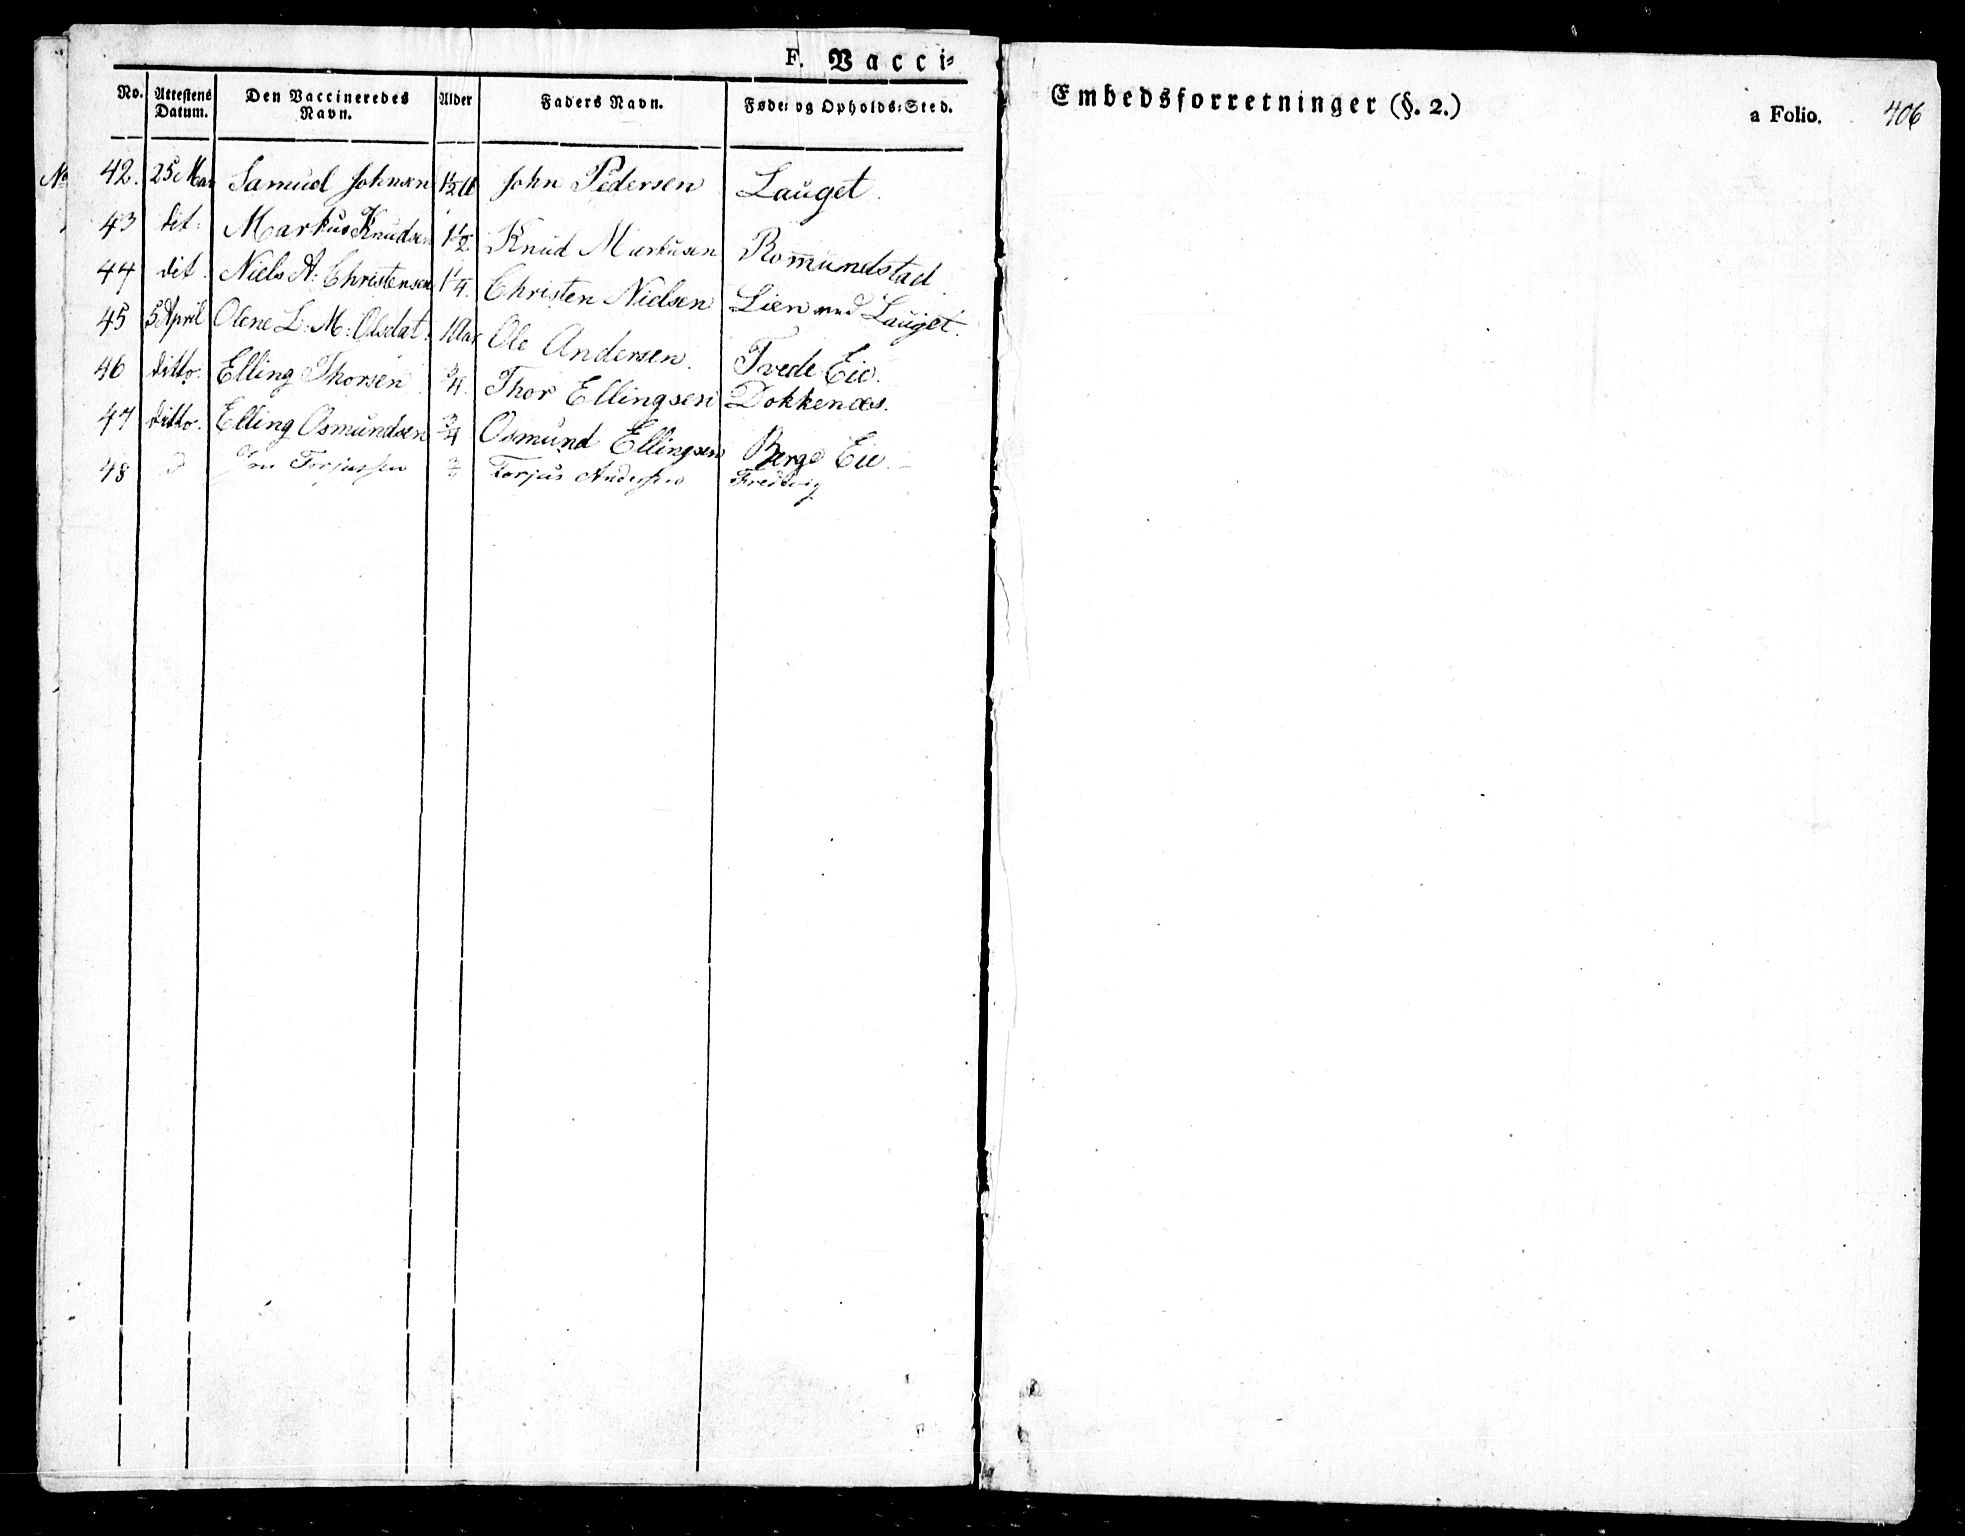 F. Vacci-
No. Attestens Datum. Den Vaccineredes Navn. Alder Faders Navn. Føde: og Opholds:Sted.
42. 25 Mar Samuel Johnsen 1½ a John Pedersen Lauget.
43 dit: Markus Knudsen 1½ Knud Markusen Romundstad
44 dit. Niels A: Christensen 1¼. Christen Nielsen Lien ved Lauget.
45 5 April Olene L: M: Olsdat: 1 Aar Ole Andersen. Tvede Eie.
46 ditto. Elling Thorsen ¾. Thor Ellingsen Dokkenæs.
47 ditto. Elling Osmundsen ¾ Osmund Ellingsen Berge Eie.
48 Torjussen Torjus Anderssen
Embedsforretninger (§. 2.) a Folio. 406
No